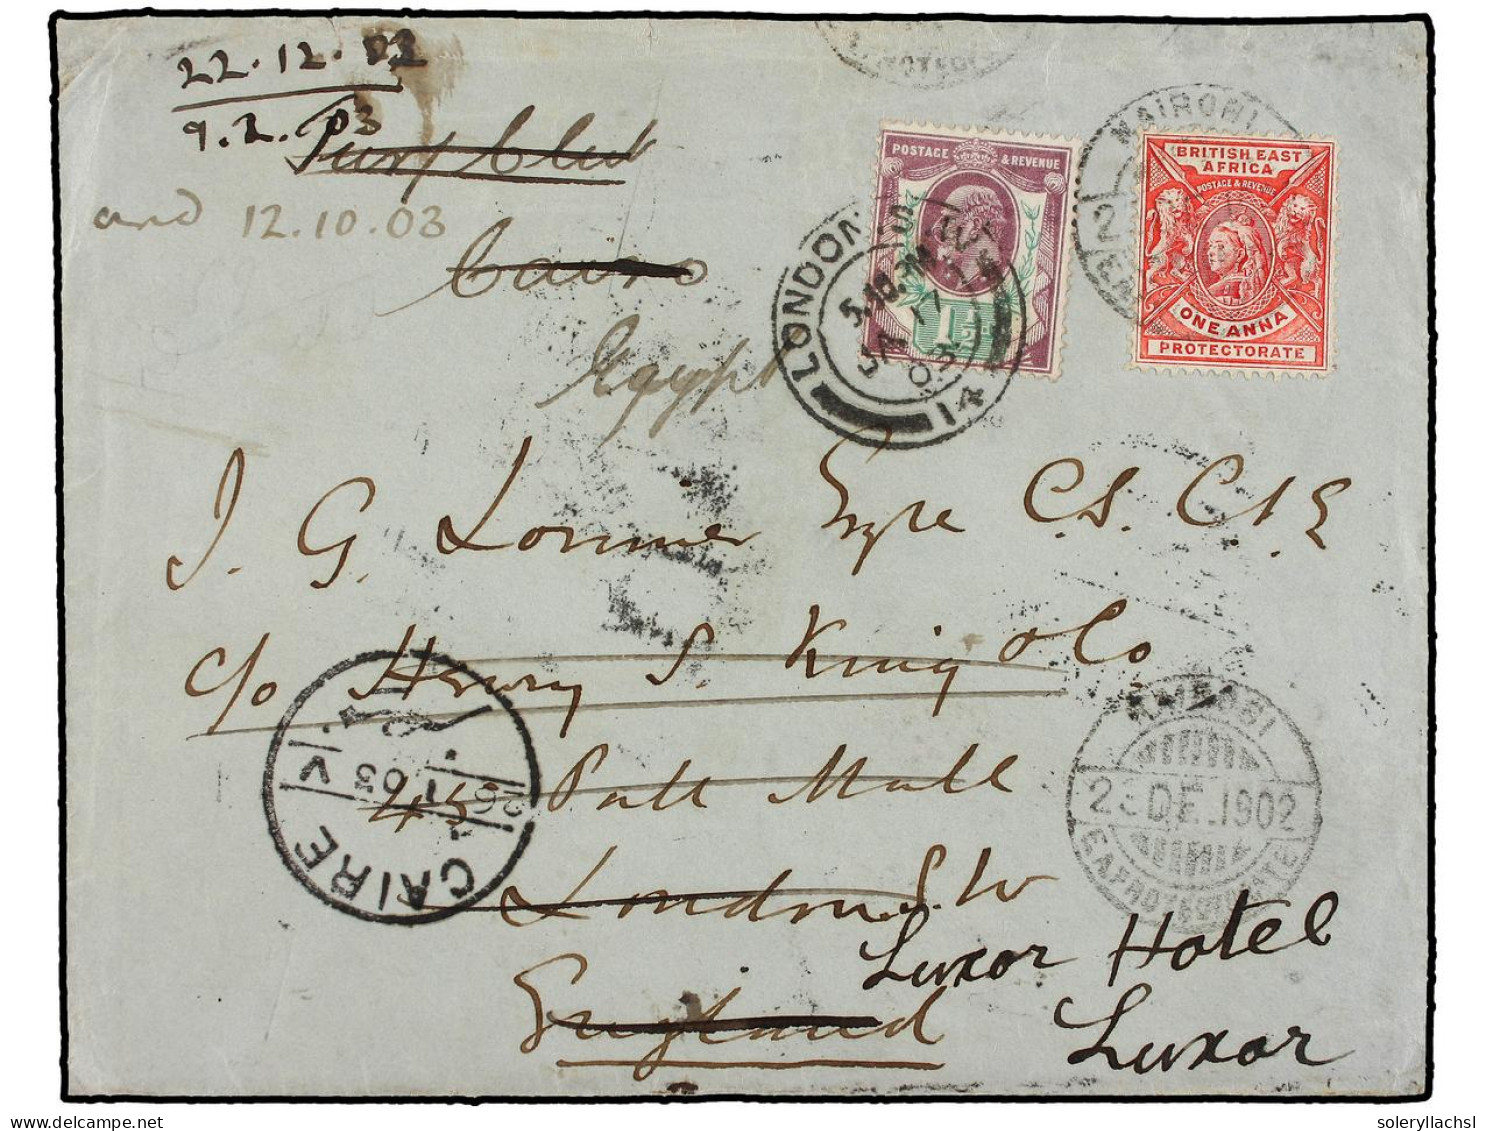 22.12.02
9.2.03
and 12.10.03
Turf Club
Cairo
Egypt
POSTAGE & REVENUE
1½d
LONDON S.W
5.40.PM
JA 17
03
14
NAIROBI
BRITISH EAST
AFRICA
POSTAGE & REVENUE
ONE ANNA
PROTECTORATE
J. G. Lorimer Esqre C.S. C.I.E
c/o Henry S. King & Co
45 Pall Mall
London S.W
England
Luxor Hotel
Luxor
CAIRE
26 I 03
V
NAIROBI
23 DE.1902
E.A.PROTECTORATE
soleryllachsl